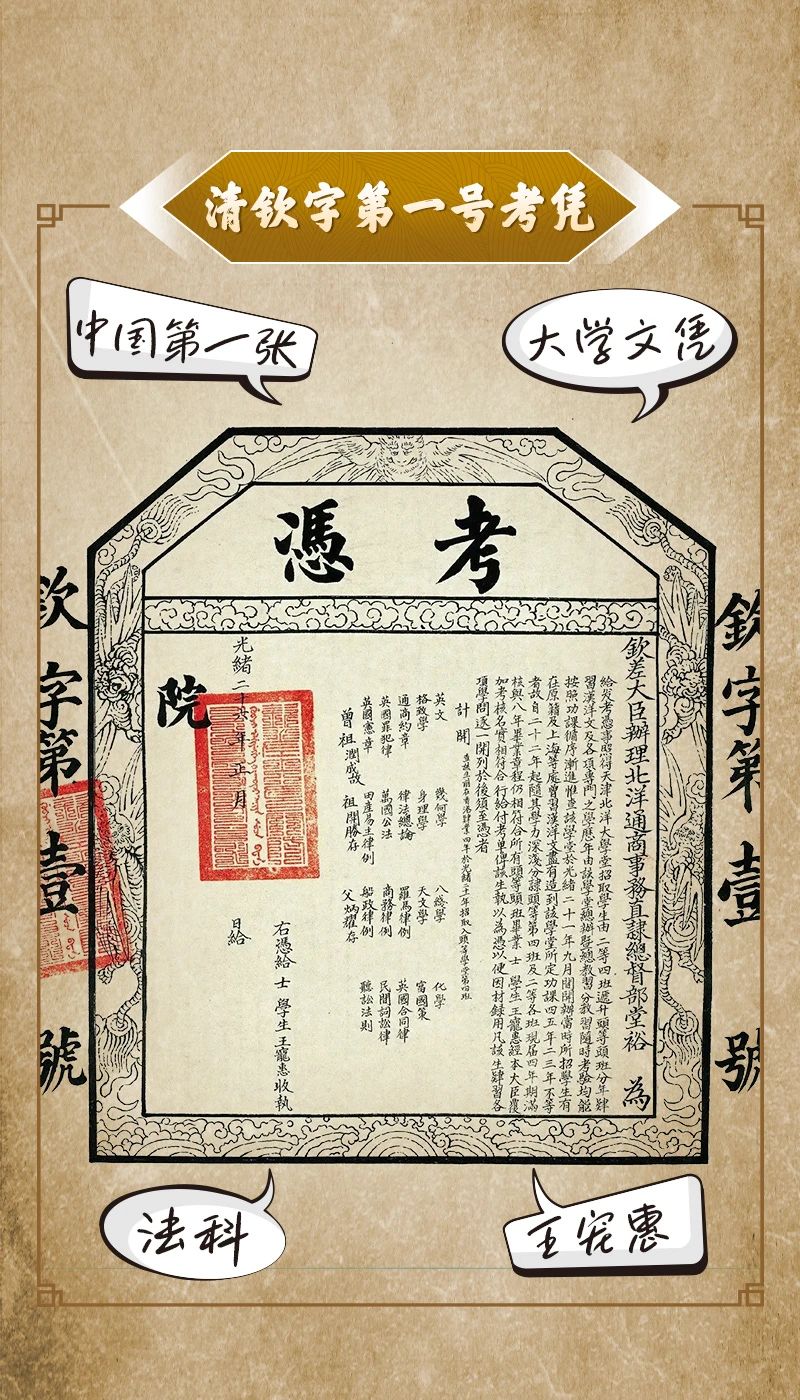 清钦字第一号考凭
中国第一张
大学文凭
考憑
欽字第壹號
欽差大臣辦理北洋通商事務直隸總督部堂裕 為
給發考憑事照得天津北洋大學堂招取學生由二等四班遞升頭等頭班分年肄
習漢洋文及各項專門之學歷年由該學堂總辦暨總教習分教習隨時考驗均能
按照功課循序漸進惟查該學堂於光緒二十一年九月間開辦當時所招學生有
在原籍及上海等處曾習漢洋文盡有造到該學堂所定功課四五年二三年不等
者故自二十二年起隨其學力深淺分隸頭等第四班及二等各班現屆四年期滿
核與八年畢業章程仍相符合所有頭等頭班畢業士 學生王寵惠經本大臣覆
加考核名實相符合行給付考單傳該生執以為憑以便因材錄用凡該生肄習各
項學問逐一開列於後須至憑者
計開
英文 幾何學 八綫學 化學
格致學 身理學 天文學 富國策
通商約章 律法總論 羅馬律例 英國合同律
英國罪犯律 萬國公法 商務律例 民間詞訟律
英國憲章 田產易主律例 船政律例 聽訟法則
曾祖潤成故 祖開勝存 父炳耀存
右憑給 士 學生 王寵惠收執
光緒二十六年正月 日給
院
欽字第壹號
法科
王宠惠